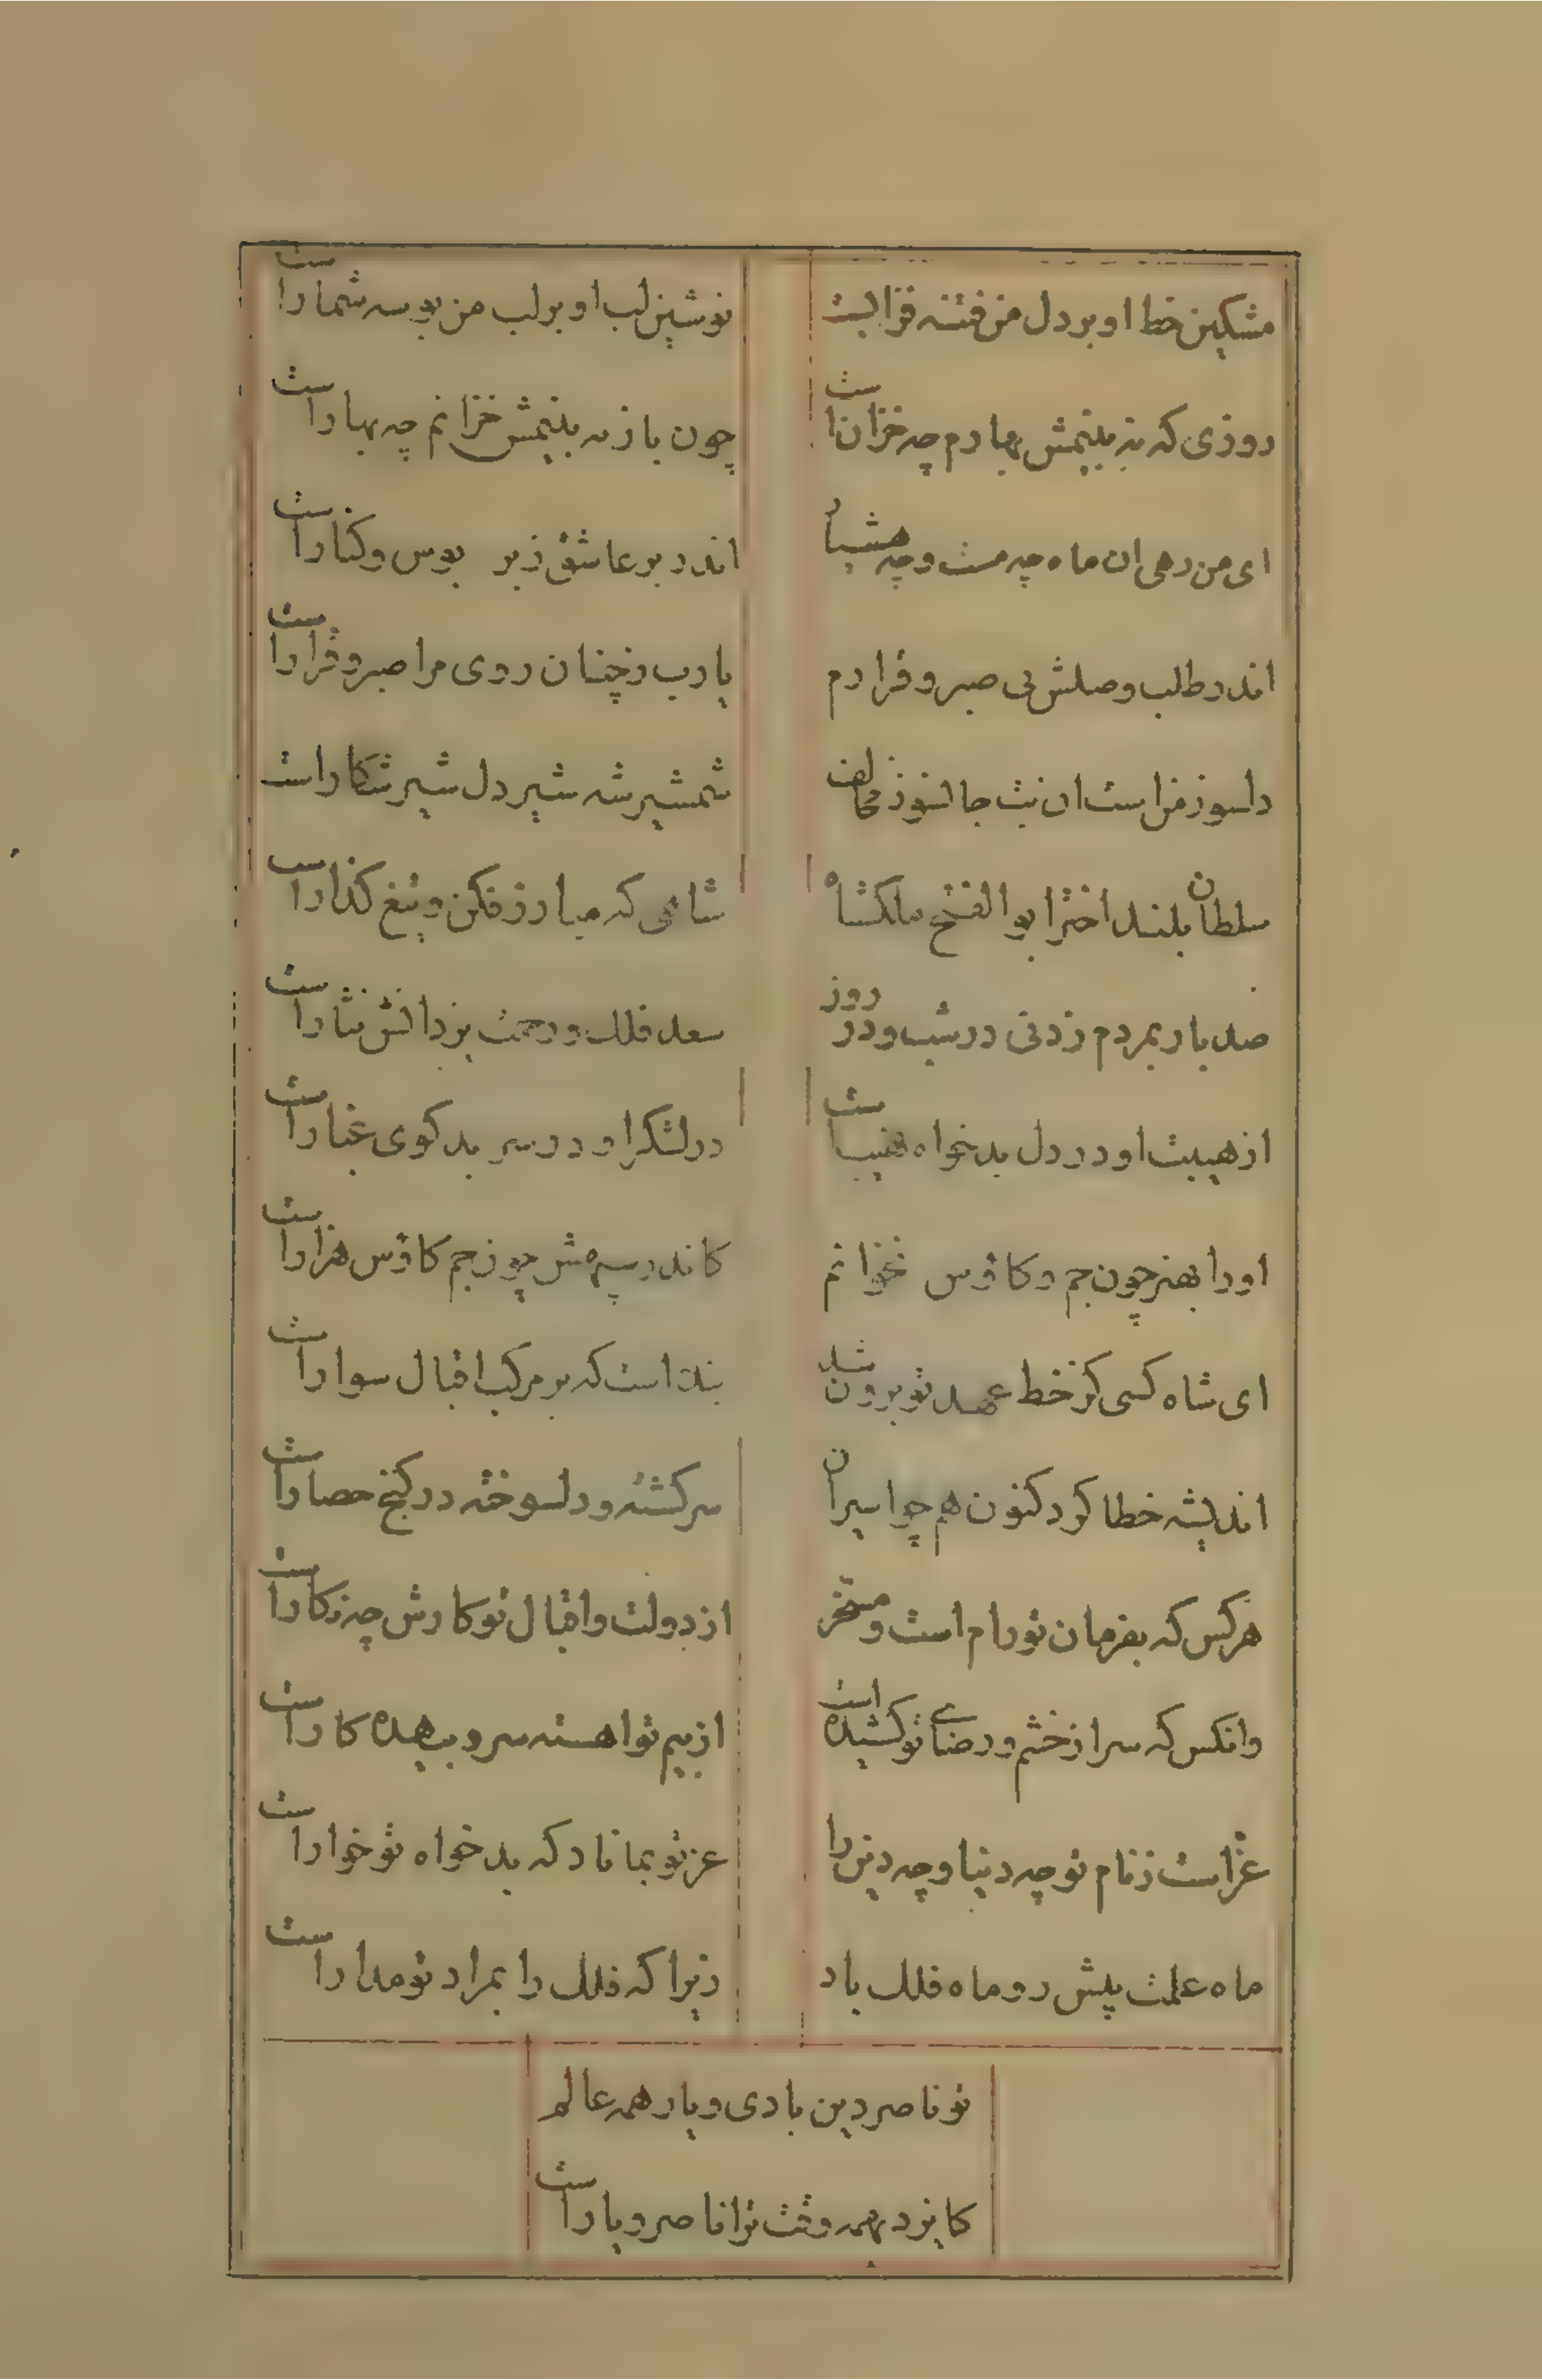 مشکین خط او بر دل من فتنه فزایست
نوشین لب او بر لب من بوسه شماراست
روزی که نه بینمش بهارم چه خزان است
چون باز به بینمش خزانم چه بهاراست
ای من رهی ان ماه چه مست و چه هشیار
اندر بر عاشق زبر بوس و کناراست
اندر طلب وصلش بی صبر و قرارم
یارب زچنان روی مرا صبر و قراراست
دلسوز من است ان بت جانسوز مخالف
شمشیر شه شیر دل شیر شکاراست
سلطان بلند اختر ابو الفتح ملکشاه
شاهی که مبارز فکن و تیغ گذاراست
صد بار بمردم زدنی در شب و در روز
سعد فلک و رحمت یزدانش نثاراست
از هیبت او در دل بدخواه نهیب است
در لشکر او در سر بدگوی غباراست
اورا بهنر چون جم و کاوس نخوانم
کاندر سپهش چون جم کاوس هزاراست
ای شاه کسی کز خط عهد تو برون شد
بنده است که بر مرکب اقبال سواراست
اندیشه خطا کرد کنون هم چو اسیران
سرکشته و دلسوخته در کنج حصاراست
هرکس که بفرمان تو رام است و مسخر
از دولت و اقبال تو کارش چه نکاراست
وانکس که سر از خشم و رضای تو کشیده است
از بیم تو اهسته سر و بیهده کاراست
عز است زنام تو چه دنیا و چه دین را
عز تو بماناد که بدخواه تو خواراست
ماه علمت پیش رو ماه فلک باد
زیرا که فلک را بمراد تو مداراست
تو ناصر دین بادی و یار همه عالم
کایزد بهمه وقت ترا ناصر و یاراست